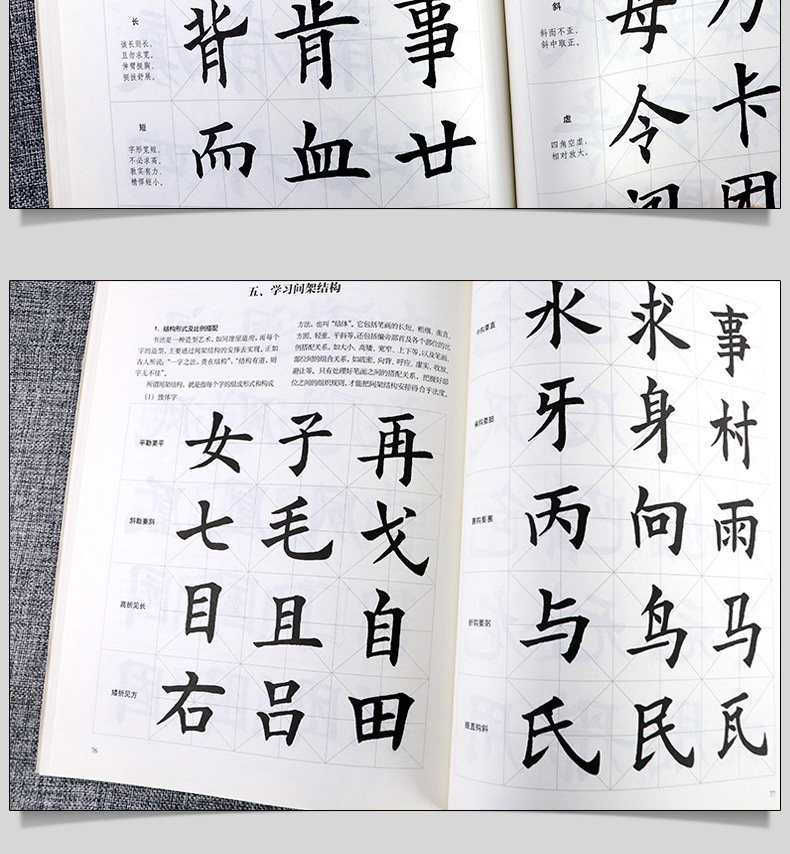 长
该长则长，
且勿求宽。
伸臂挺胸，
挺拔舒展。
背 肯 事
短
字形宽短，
不必求高。
敦实有力，
精悍短小。
而 血 廿
斜
斜而不歪，
斜中取正。
母 力
虚
四角空虚，
相对放大。
令 卡
五、学习间架结构
1．结构形式及比例搭配
书法是一种造型艺术，如同建屋造房，而每个
字的造型，主要通过间架结构的安排去实现，正如
古人所说：“一字之法，贵在结构”、“结构有道，则
字无不佳”。
所谓间架结构，就是指每个字的组成形式和构成
方法，也叫“结体”。它包括笔画的长短、粗细、曲直、
方圆、轻重、平斜等，还包括偏旁部首及各个部位的比
例搭配关系，如大小、高矮、宽窄、上下等，以及笔画、
部位间的组合关系，如疏密、向背、呼应、虚实、收放、
避让等，只有处理好笔画之间的搭配关系，把握好部
位之间的组织规则，才能把间架结构安排得合乎法度。
（1）独体字
平勒要平
女 子 再
斜勒要斜
七 毛 戈
高折见长
目 且 自
矮折见方
右 吕 田
76
中钩要直
水 求 事
牙 身 村
裹钩要裹
丙 向 雨
折钩要努
与 鸟 马
提直钩斜
氏 民 瓦